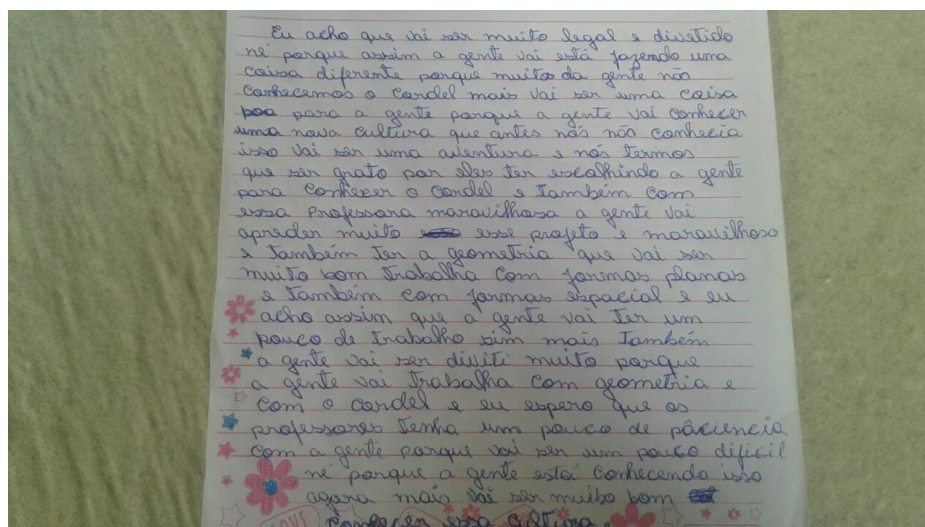 Eu acho que vai ser muito legal e divetido
né porque assim a gente vai está fazendo uma
coisa diferente porque muitos da gente não
conhecemos o cordel mais vai ser uma coisa
boa para a gente porque a gente vai conhecer
uma nova cultura que antes nós não conhecia
isso vai ser uma aventura e nós termos
que ser grato por eles ter escolhindo a gente
para conhecer o cordel e também com
essa professora maravilhosa a gente vai
apreder muito esse projeto e maravilhoso
e também ter a geometria que vai ser
muito bom trabalha com formas planas
e também com formas espacial e eu
acho assim que a gente vai ter um
pouco de trabalho sim mais também
a gente vai ser diviti muito porque
a gente vai trabalha com geometria e
com o cordel e eu espero que os
professores tenha um pouco de páciencia
com a gente porque vai ser um pouco dificil
né porque a gente está conhecendo isso
agora mais vai ser muito bom
LOVE conhecer essa cultura.